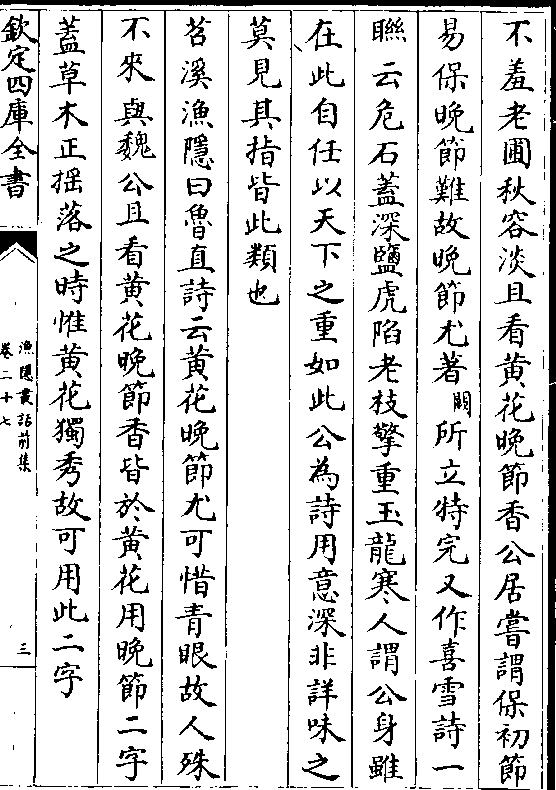 不羞老圃秋容淡且看黃花晚節香公居嘗謂保初節
易保晚節難故晚節尤著闕所立特完又作喜雪詩一
聯云危石蓋深鹽虎陷老枝擎重玉龍寒人謂公身雖
在此自任以天下之重如此公為詩用意深非詳味之
莫見其指皆此類也
苕溪漁隱曰魯直詩云黃花晚節尤可惜青眼故人殊
不來與魏公且看黃花晚節香皆於黃花用晚節二字
蓋草木正揺落之時惟黃花獨秀故可用此二字
欽定四庫全書
漁隱叢話前集
卷二十七
三